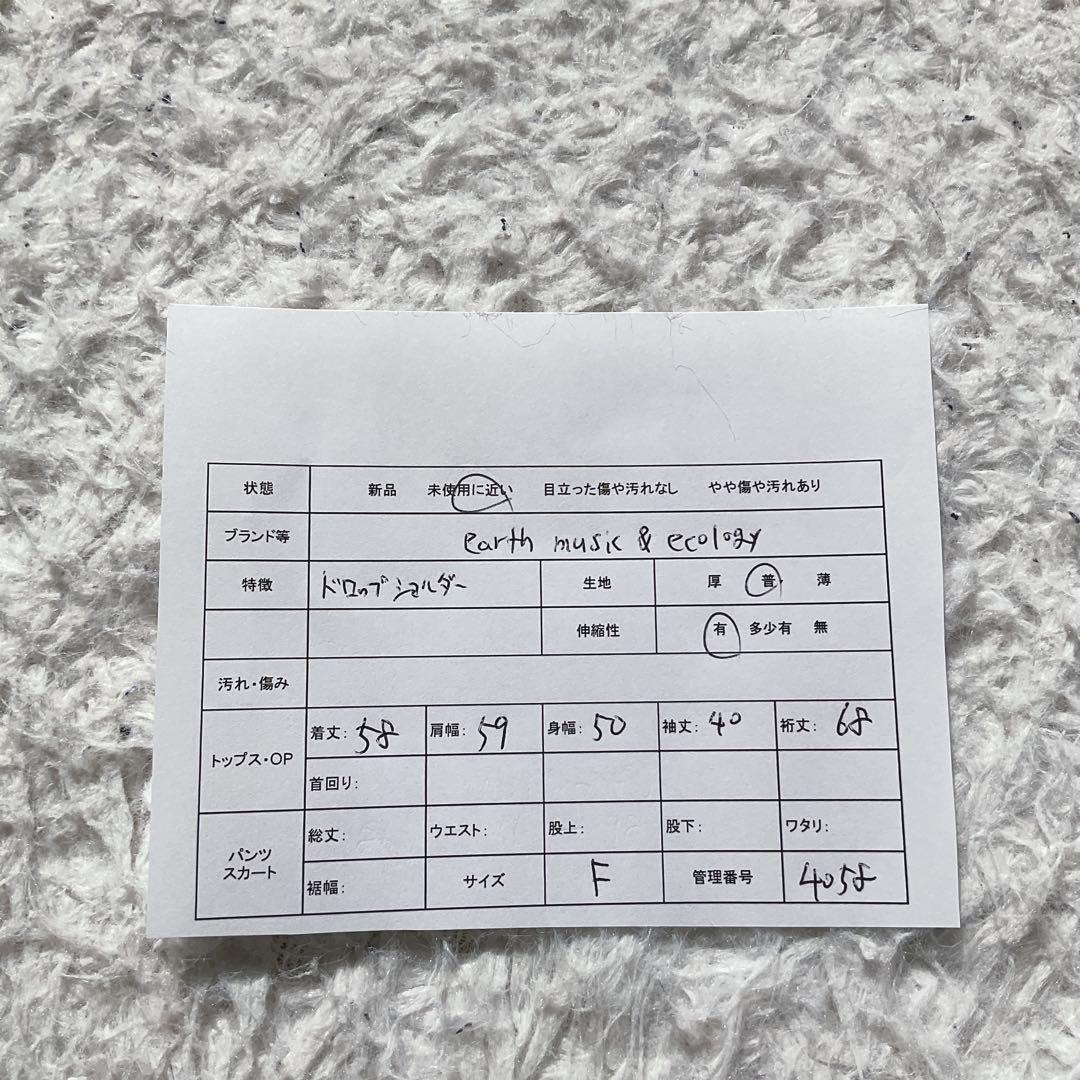 状態 新品 未使用に近い 目立った傷や汚れなし やや傷や汚れあり
ブランド等 earth music & ecology
特徴 ドロップショルダー 生地 厚 普 薄
伸縮性 有 多少有 無
汚れ・傷み
トップス・OP
着丈: 58 肩幅: 59 身幅: 50 袖丈: 40 裄丈: 68
首回り:
パンツ
スカート
総丈: ウエスト: 股上: 股下: ワタリ:
裾幅: サイズ F 管理番号 4058